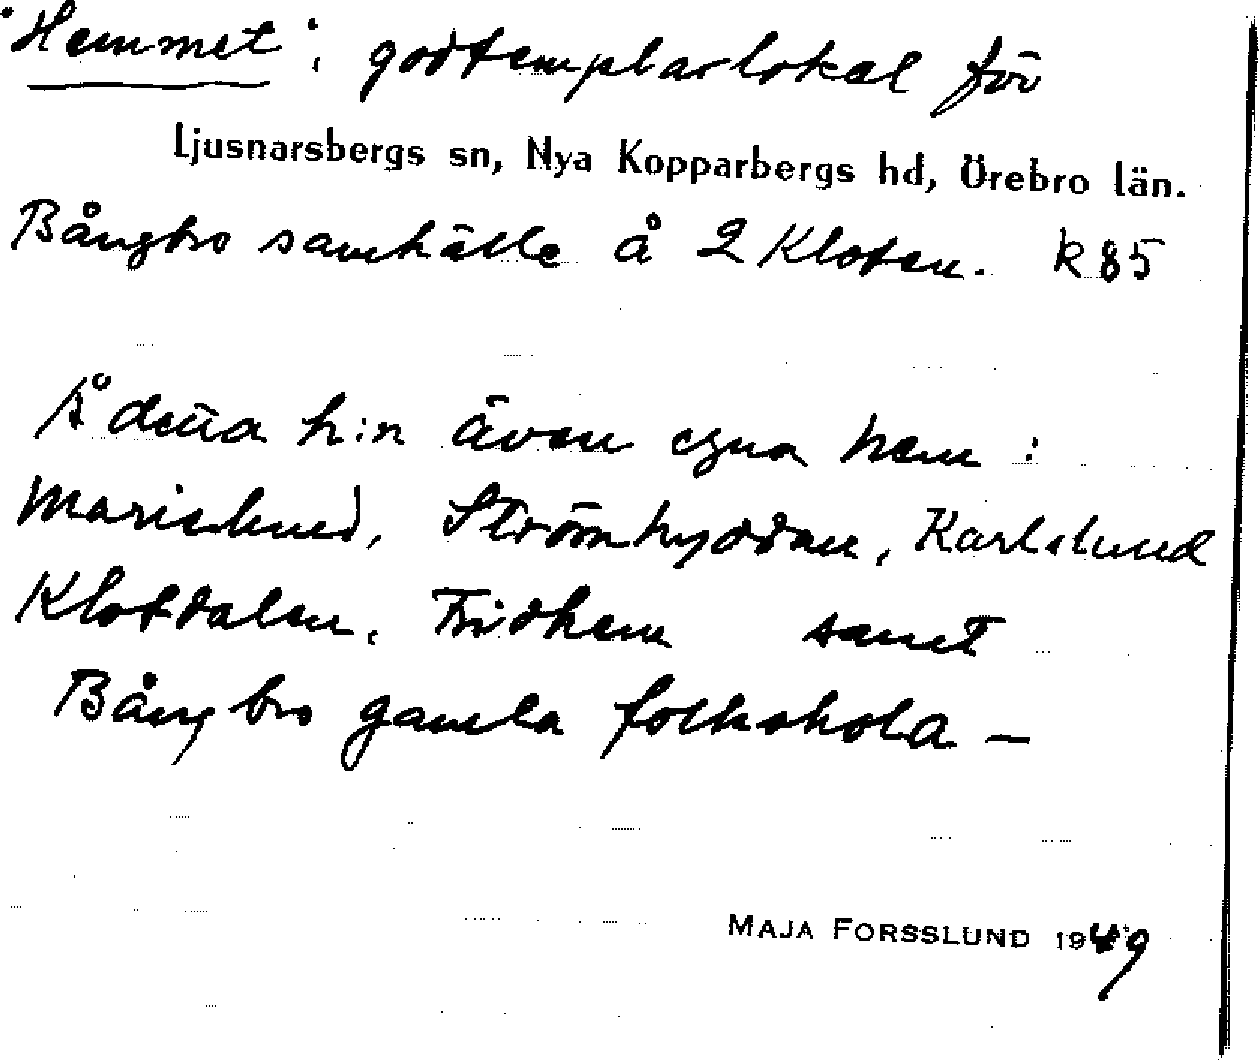 "Hemmet", godtemplarlokal för
Ljusnarsbergs sn, Nya Kopparbergs hd, Örebro län.
Bångbro samhälle å 2 Kloten. k 85
Å den̄a h:n även egna hem :
Marielund, Strömhyddan, Karlslund
Klotdalen, Fridhem samt
Bångbro gamla folkskola –
MAJA FORSSLUND 1949